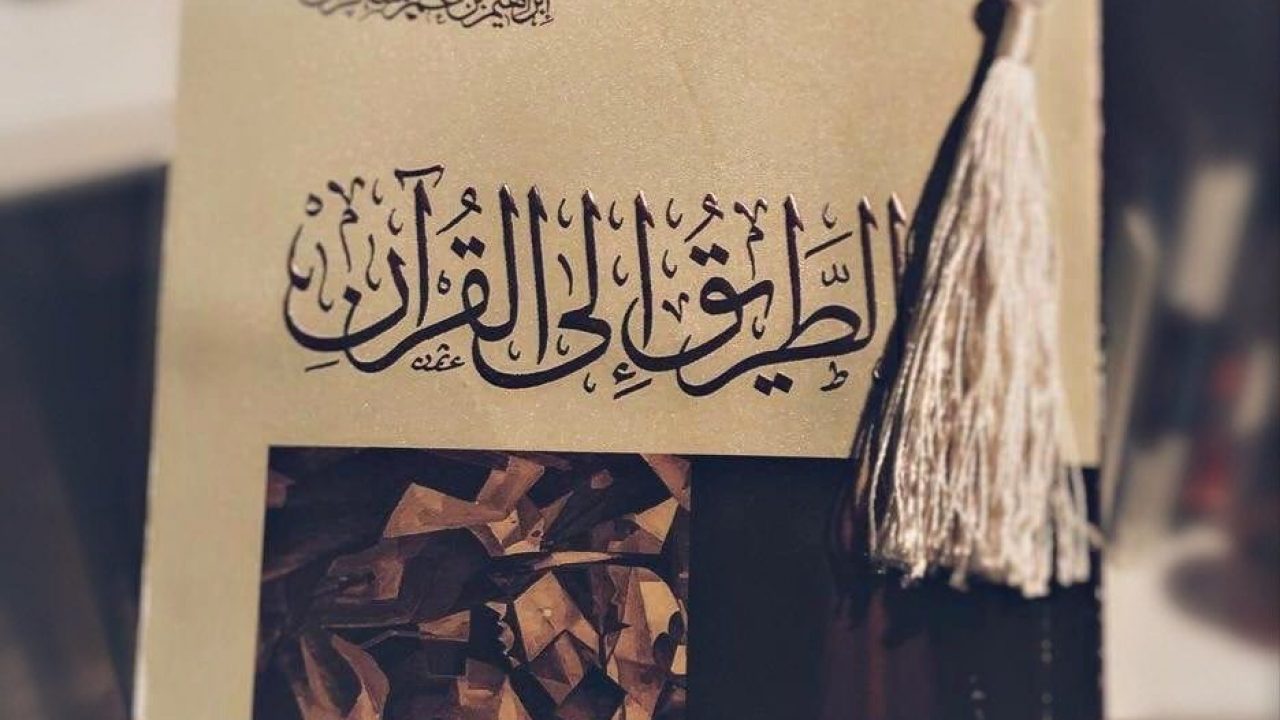 إبراهيم بن عمر السكران
الطَّرِيقُ إِلى القُرآنِ